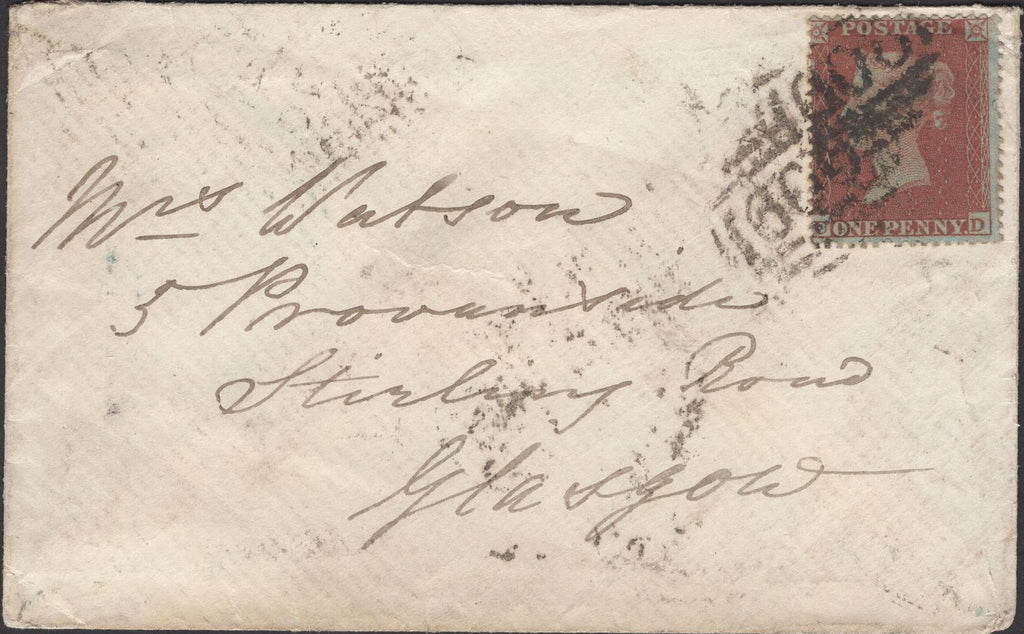 POSTAGE
ONE PENNY. D
Mrs Watson
5 Provanside
Stirling Road
Glasgow